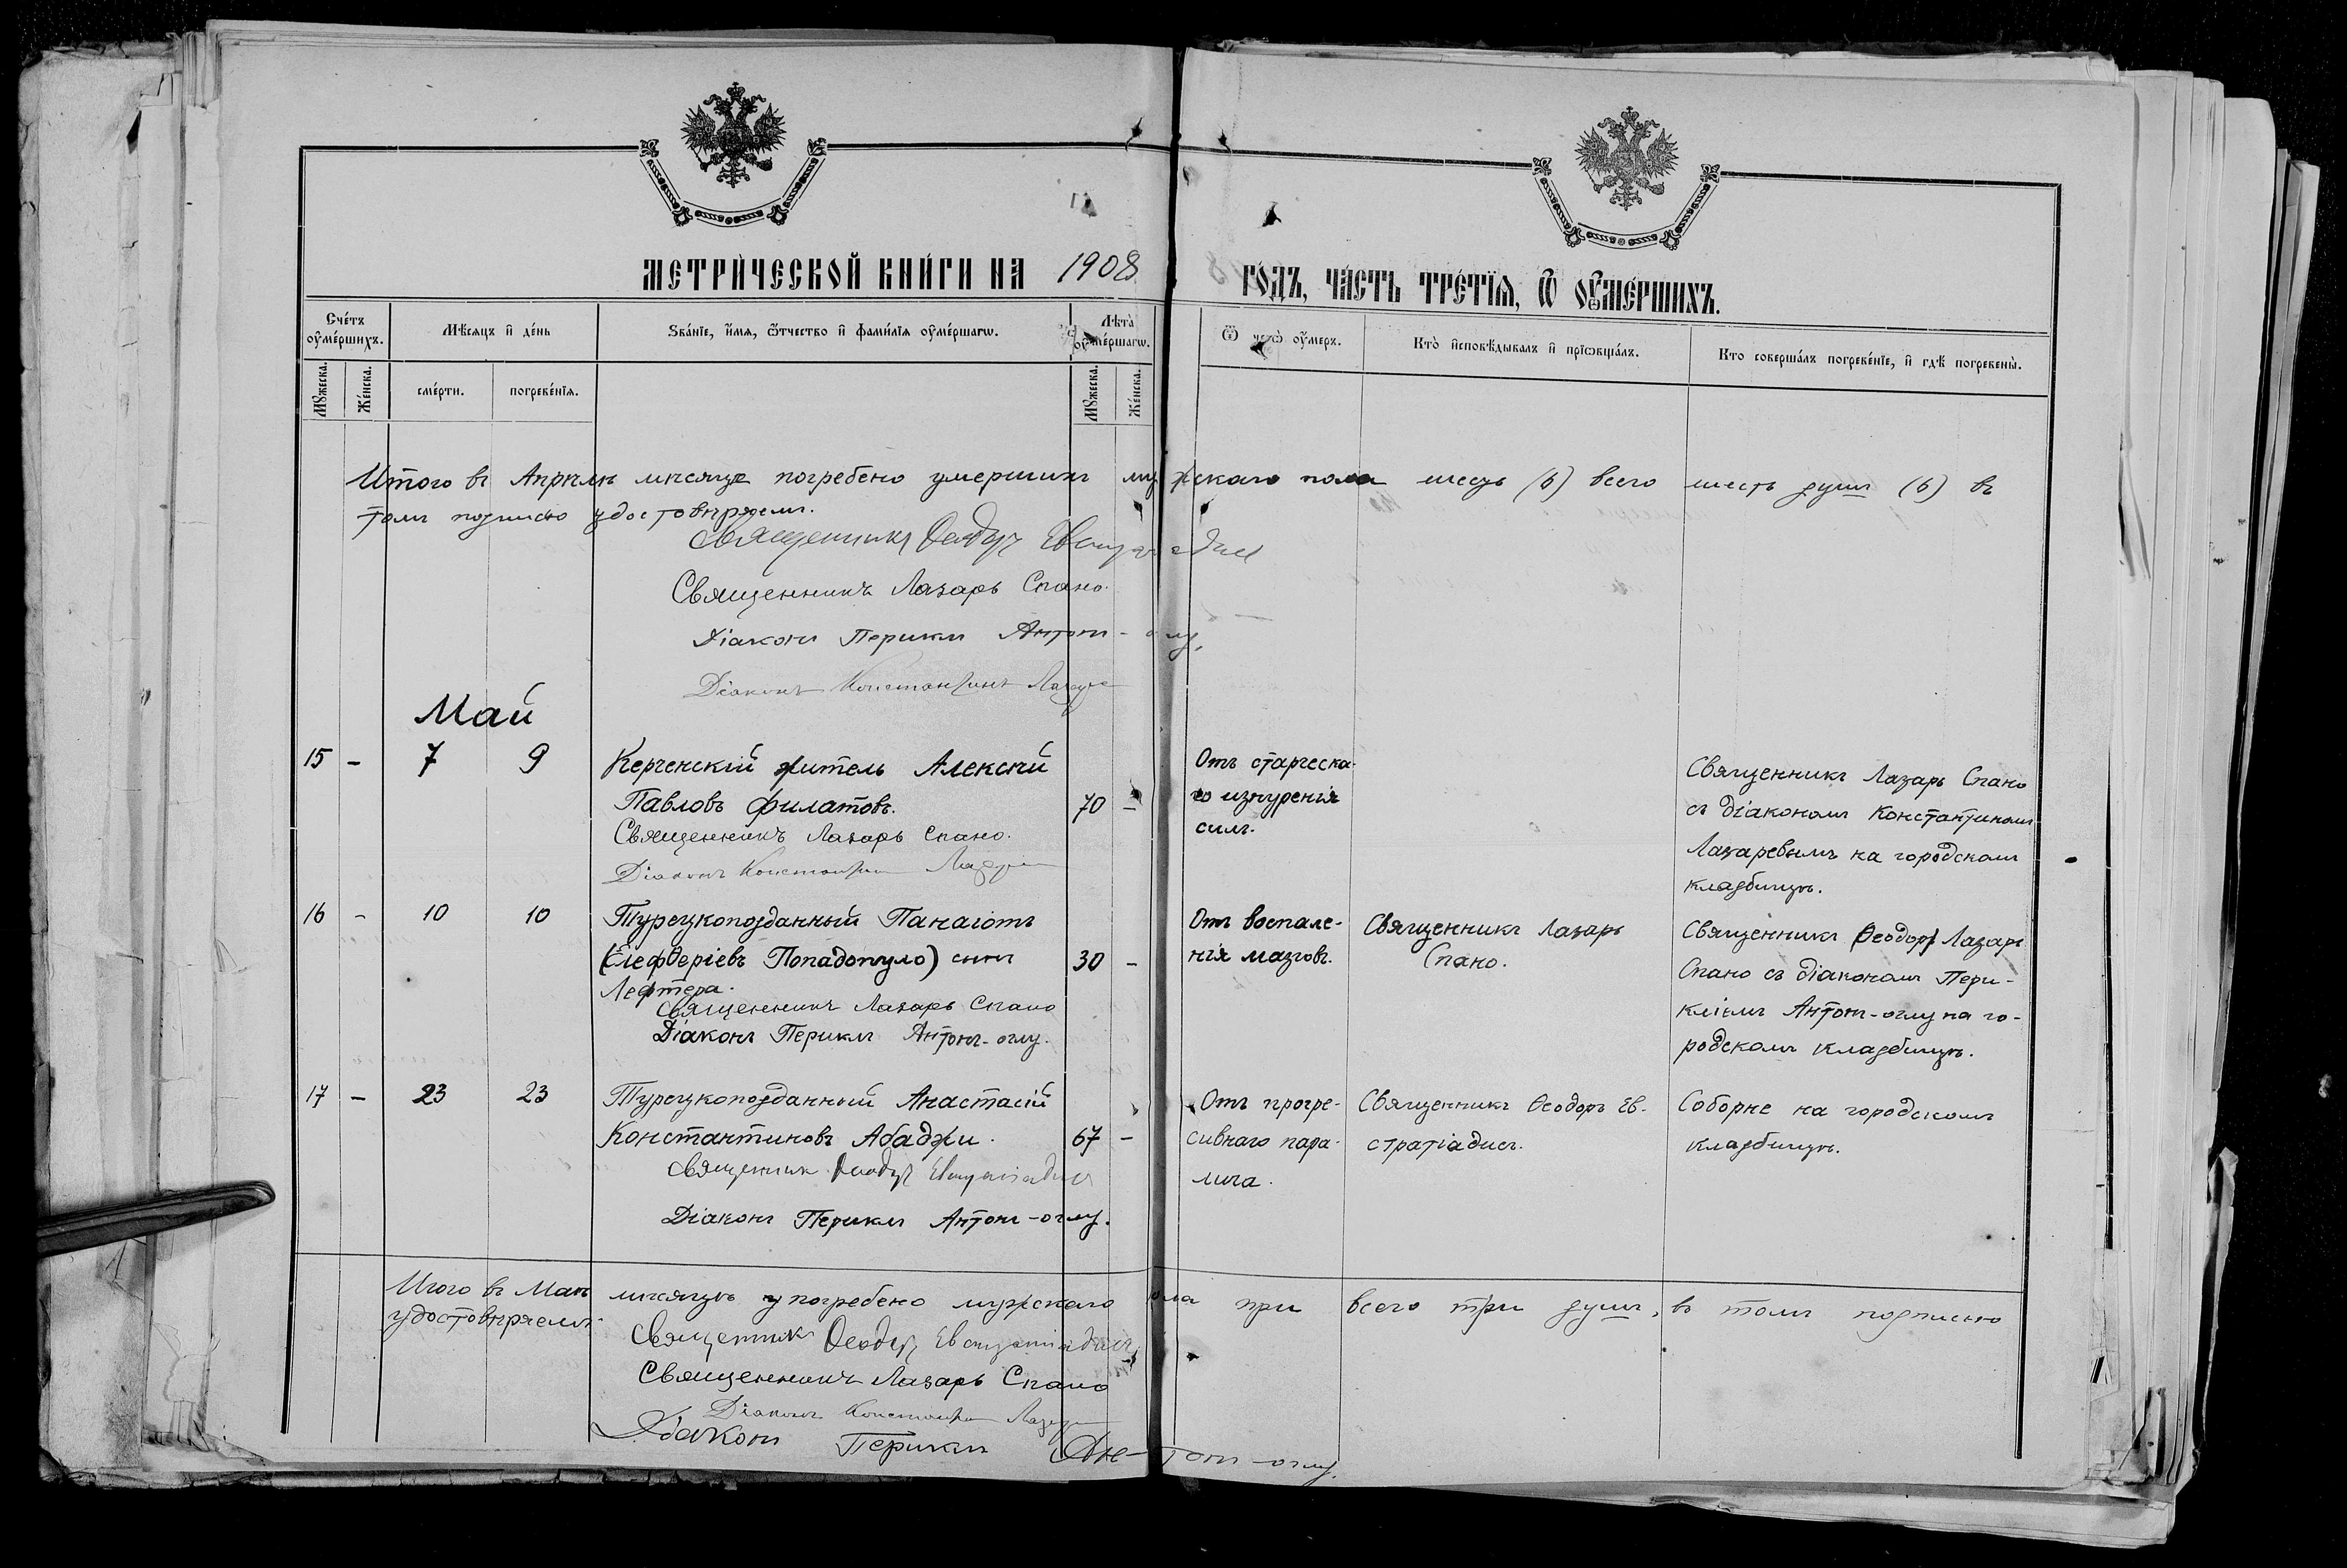 МЕТРИ́ЧЕСКОЙ КНИ́ГИ НА 1908 ГО́ДЪ, ЧА́СТЬ ТРЕ́ТЇѦ, Ѽ ОУ҆МЕ́РШИХЪ.
Сче́тъ оу҆ме́ршихъ.
Мꙋ́жеска.
Же́нска.
Мѣ́сѧцъ и҆ де́нь
сме́рти.
погребе́нїѧ.
Ѕва́нїе, и҆́мѧ, ѻ҆́тчество и҆ фами́лїѧ оу҆ме́ршагѡ.
Лѣ́та оу҆ме́ршагѡ.
Мꙋ́жеска.
Же́нска.
Ѿ чегѡ̀ оу҆́меръ.
Кто̀ и҆сповѣ́дывалъ и҆ прїѡбща́лъ.
Кто соверша́лъ погребе́нїе, и҆ гдѣ̀ погребены̀.
Итого въ Апрѣлѣ мѣсяце погребено умершихъ мужскаго пола шесть (6) всего шесть душъ (6) въ
томъ подписью удостовѣряемъ.
Священникъ Ѳеодоръ Евстратіадисъ
Священникъ Лазарь Спано.
Діаконъ Периклъ Антонъ-оглу.
Діаконъ Константинъ Лазаревъ
Май
15 - 7 9
Керченскій житель Алексѣй
Павловъ Филатовъ.
70 -
Священникъ Лазарь Спано.
Діаконъ Константинъ Лазаревъ
Отъ старческа-
го изнуренія
силъ.
Священникъ Лазарь Спано
съ діакономъ Константиномъ
Лазаревымъ на городскомъ
кладбищѣ.
16 - 10 10
Турецкоподданный Панаіотъ
(Елефѳеріевъ Попадопуло) сынъ
Лефтера.
30 -
Священникъ Лазарь Спано
Діаконъ Периклъ Антонъ-оглу.
Отъ воспале-
нія мазговъ.
Священникъ Лазарь
Спано.
Священникъ Ѳеодоръ Лазарь
Спано съ діакономъ Пери-
кліемъ Антонъ-оглу на го-
родскомъ кладбищѣ.
17 - 23 23
Турецкоподданный Анастасій
Константиновъ Абаджи.
67 -
Священникъ Ѳеодоръ Евстратіадисъ
Діаконъ Периклъ Антонъ-оглу.
Отъ прогре-
сивнаго пара-
лича.
Священникъ Ѳеодоръ Ев-
стратіадисъ.
Соборне на городскомъ
кладбищѣ.
Итого въ Маѣ мѣсяцѣ погребено мужскаго пола три всего три душъ, въ томъ подписью
удостовѣряемъ.
Священникъ Ѳеодоръ Евстратіадисъ
Священникъ Лазарь Спано
Діаконъ Константинъ Лазаревъ
Діаконъ Периклъ Антонъ-оглу.